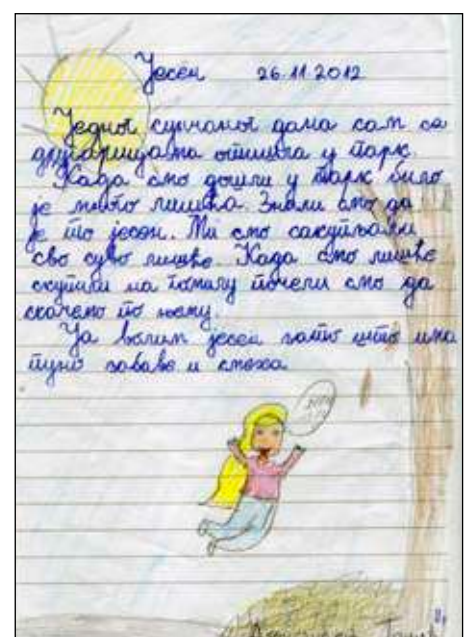 Јесен 26.11.2012
Једног сунчаног дана сам са
другарицама отишла у парк.
Када смо дошли у парк било
је много лишћа. Знали смо да
је то јесен. Ми смо сакупљали
сво суво лишће. Када смо лишће
скупили на гомилу почели смо да
скачемо по њему.
Ја волим јесен зато што има
пуно забаве и смеха